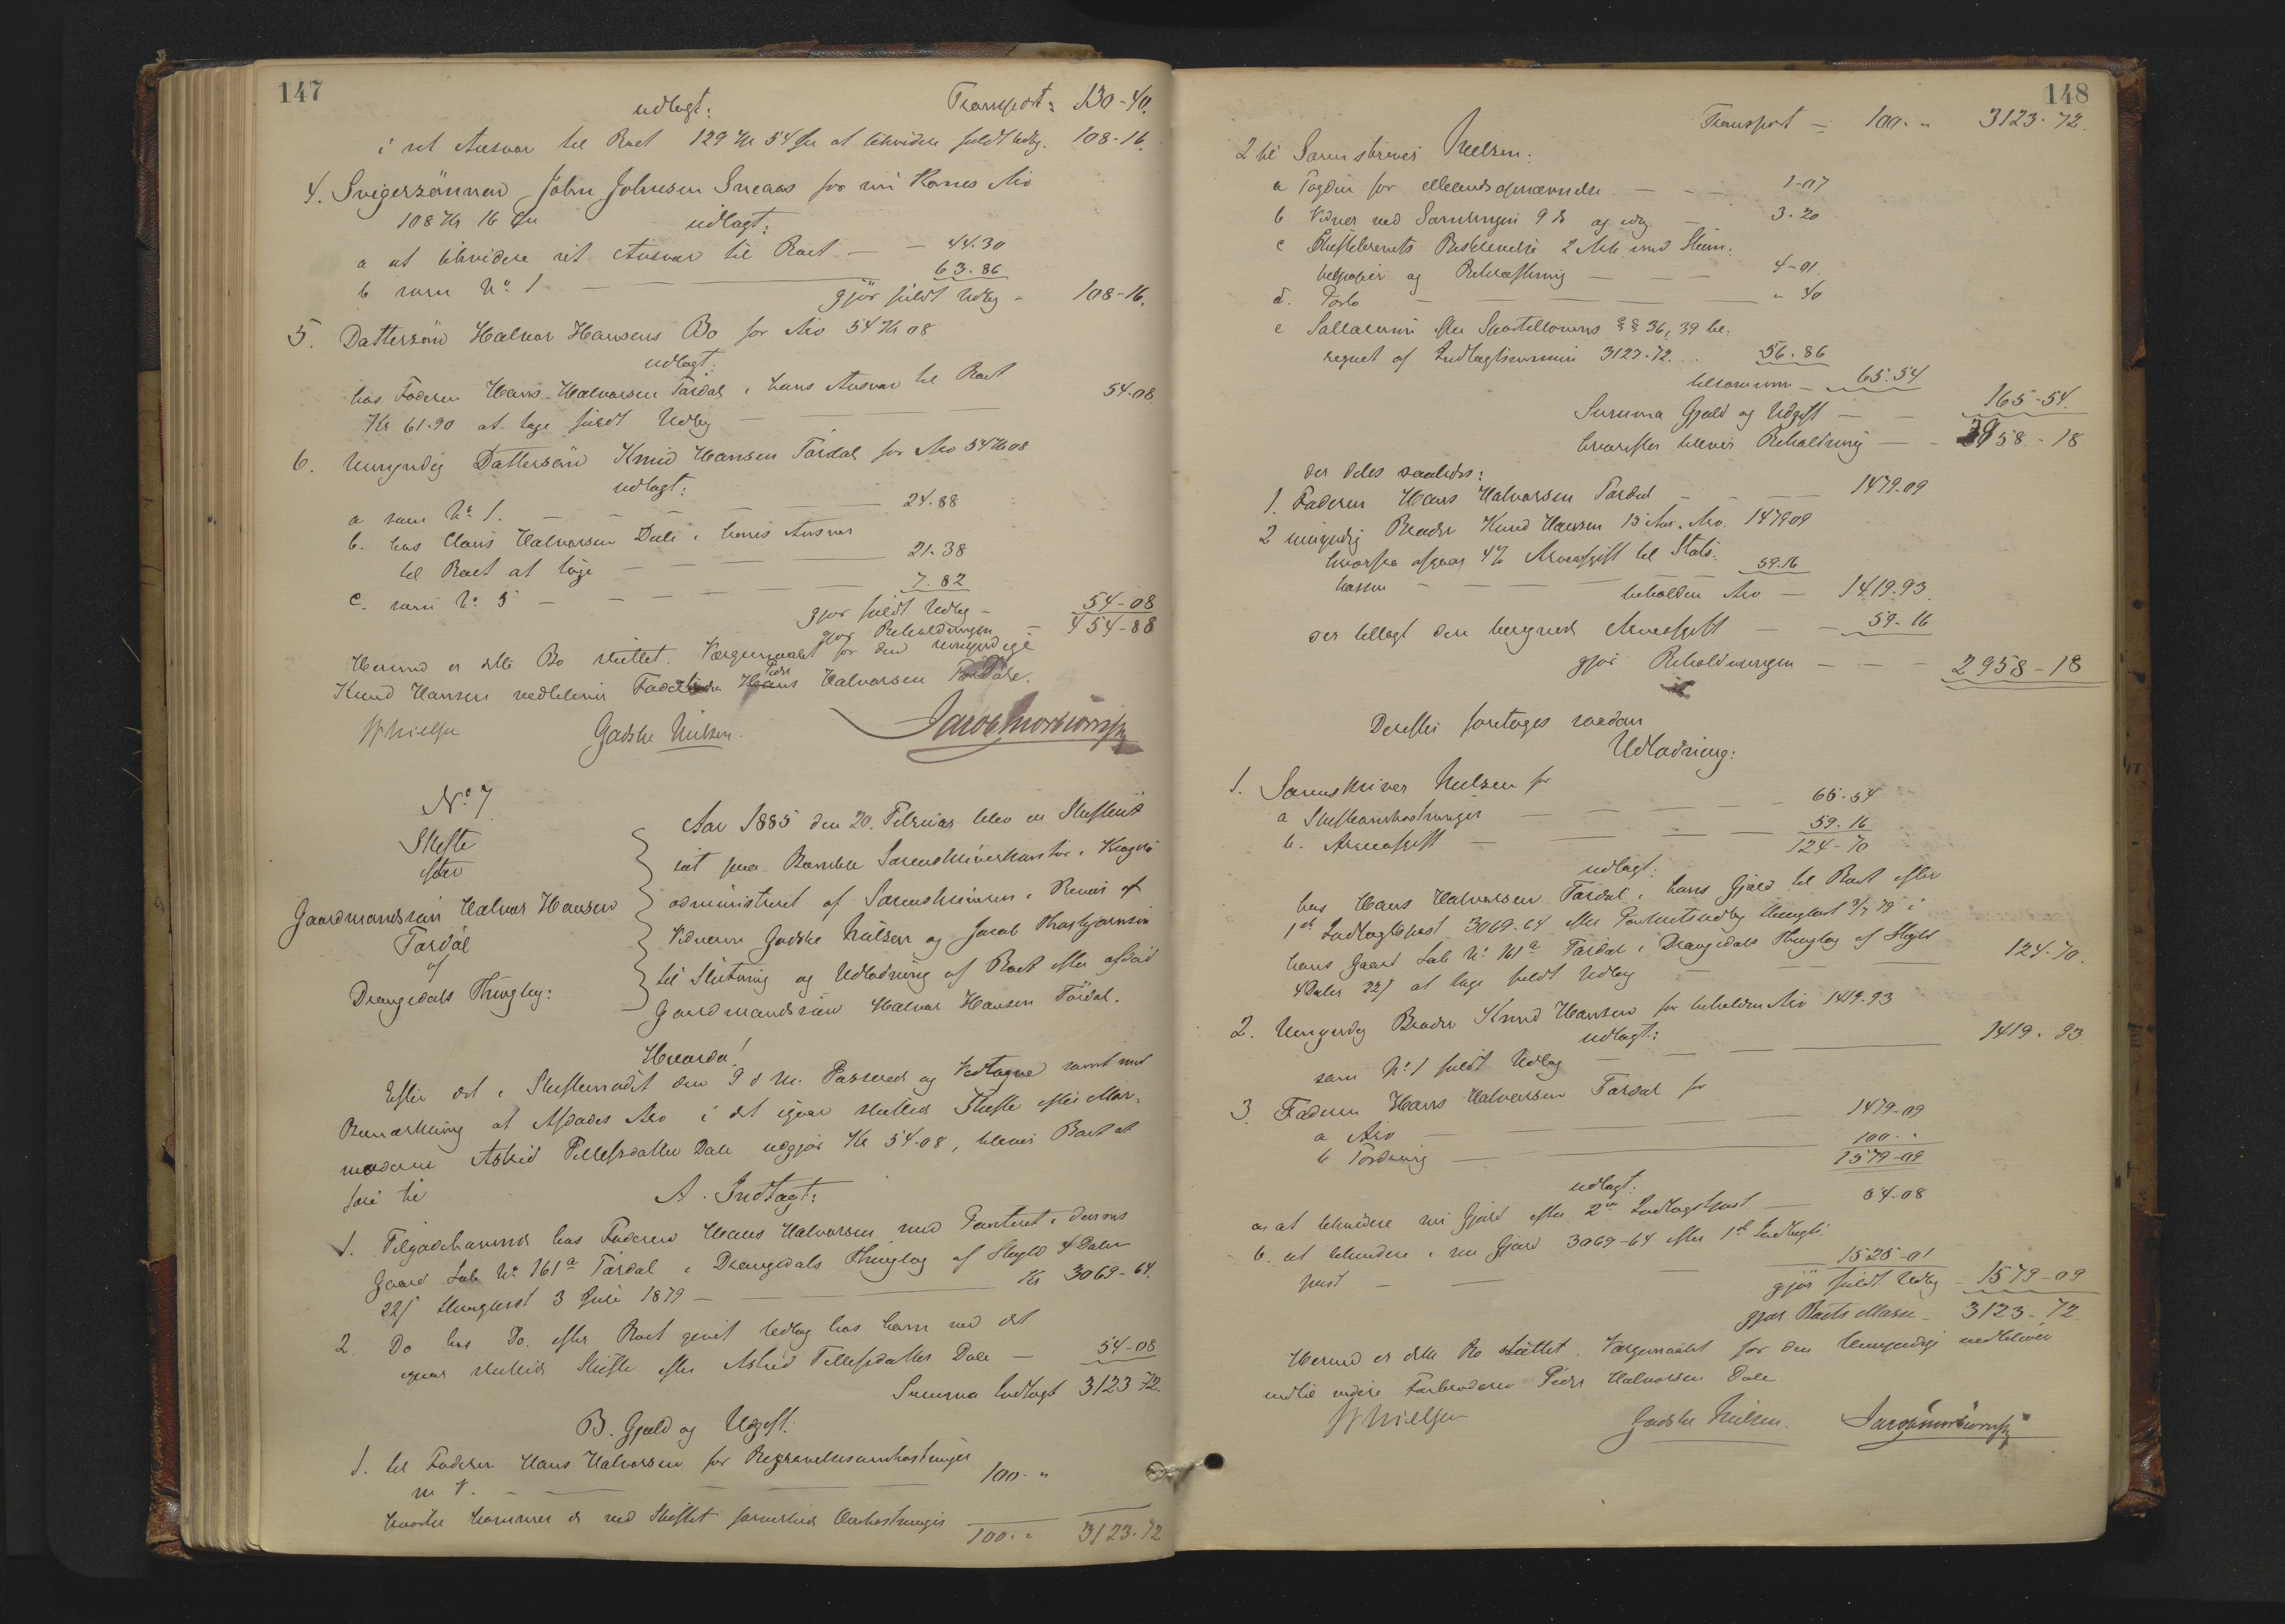 147
udlagt: Transport = 130-40.
i sit Ansvar til Boet 129 Kr 54 Øre at likvidere fuldt Udlæg. 108-16.
4. Svigersønnen John Johnsen Sneaas for sin Kones Arv
108 Kr 16 Øre udlagt:
a at likvidere sit Ansvar til Boet — — 44.30
b som No 1 — — 63.86
gjør fuldt Udlæg - 108-16.
5. Dattersøn Halvor Hansens Bo for Arv 54 Kr 08
udlagt:
hos Faderen Hans Halvorsen Tørdal i hans Ansvar til Boet
Kr 61.90 at tage fuldt Udlæg — — 54-08.
6. Umyndig Dattersøn Knud Hansen Tørdal for Arv 54 Kr 08
udlagt:
a som No 1. — — — 24.88
b. hos Hans Halvorsen Dale i hans Ansvar
til Boet at tage — — — 21.38
c. som No 5 — — — 7.82
gjør fuldt Udlæg - 54-08
gjør Beholdningen - 454-88
Hermed er dette Bo sluttet. Værgemaalet for den umyndige
Knud Hansen vedbliver Peder Halvorsen
Gadske Nielsen.
No 7
Skifte
efter
Gaardmandssøn Halvor Hansen
Tørdal
af
Drangedals Thinglag:
Aar 1885 den 20. Februar blev en Skifteret
sat paa Bamble Sorenskriverkontor i Kragerø
administreret af Sorenskriveren i Overvær af
Vidnerne Gadske Nielsen og Jacob Thorbjørnsen
til Slutning og Udlodning af Boet efter afdød
Gaardmandssøn Halvor Hansen Tørdal.
Hvorda!
Efter det i Skifteradet den 9 d M. Passerede og Vedtagne samt med
Bemærkning at Afdødes Arv i det igaar sluttede Skifte efter Mor-
moderen Astrid Tellefsdatter Dale udgjør Kr 54-08, bliver Boet at
føre til A. Indtægt:
1. Tilgodehavende hos Faderen Hans Halvorsen med Panteret i dennes
Gaard Løb No 161a Tørdal i Drangedals Thinglag af Skyld 4 Daler
22 s thinglæst 3 Juli 1879 — — Kr 3069-64.
2. Do hos Do. efter Boet givet Udlæg hos ham ved det
igaar sluttede Skifte efter Astrid Tellefsdatter Dale — 54-08
Summa Indtægt 3123 72.
B. Gjæld og Udgift:
1. til Faderen Hans Halvorsen for Begravelsesomkostninger
m V. — — — 100. "
hvortil kommer de ved Skiftet foranledede Omkostninger
100. " 3123.72
148
Transport — 100. " 3123.72.
2 til Sorenskriver Nielsen:
a Dagden for — — 1-07
b Vidner ved Samlingen 9 ds og idag — 3.20
c Skiftebrevets Beskrivelse 2 Ark med Stem-
pelpapir og Bekræftning — — 4-01
d. Porto — — — " 40
e Sallarium efter Sportellovens §§ 36, 39 be-
regnet af Indtægtssummen 3123-72. 56.86
tilsammen — 65.54
Summa Gjæld og Udgift — — 165-54.
hvorefter bliver Beholdning — — 2958-18
der deles saaledes:
1. Faderen Hans Halvorsen Tørdal — — 1479.09
2 umyndig Broder Knud Hansen 15 Aar. Arv. 1479 09
hvorfra afgaar 4% Arveafgift til Stats-
kassen — — 59.16
beholden Arv — 1419.93.
der tillagt den beregnede Arveafgift — — 59-16
gjør Beholdningen — — — 2958-18
Derefter foretoges saadan
Udlodning:
1. Sorenskriver Nielsen for
a Skifteomkostninger — — 65-54
b. Arveafgift — — — 59.16
124-70
udlagt:
hos Hans Halvorsen Tørdal i hans Gjæld til Boet efter
1ste Indtægtspost 3069-64 efter Panteretsudlæg thinglæst 3/7 79 i
hans Gaard Løb No 161a Tørdal i Drangedals Thinglag af Skyld
4 Daler 22 s at tage fuldt Udlæg — — 124-70.
2. Umyndig Broder Knud Hansen for beholden Arv 1419.93
udlagt:
som No 1 fuldt Udlæg — — 1419.93
3. Faderen Hans Halvorsen Tørdal for
a Arv — — 1479-09
b Fordring — — 100. "
1579-09
udlagt:
a at likvidere sin Gjæld efter 2den Indtægtspost — 54-08
b. at likvidere i sin Gjæld 3069-64 efter 1ste Indtægts-
post — — — 1525-01
gjør fuldt Udlæg — 1579-09
gjør Boets Masse — 3123-72.
Hermed er dette Bo sluttet. Værgemaalet for den Umyndige vedbliver
indtil videre Farbroderen Peder Halvorsen Dale.
Gadske Nielsen.